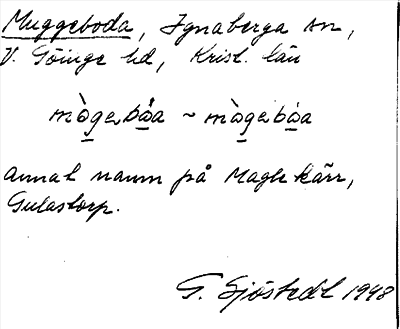 Muggeboda, Ignaberga sn,
V. Göinge hd, Krist. län
mògebåa ~ mògebåa
Annat namn på Maglekärr,
Gulastorp.
G. Sjöstedt 1948